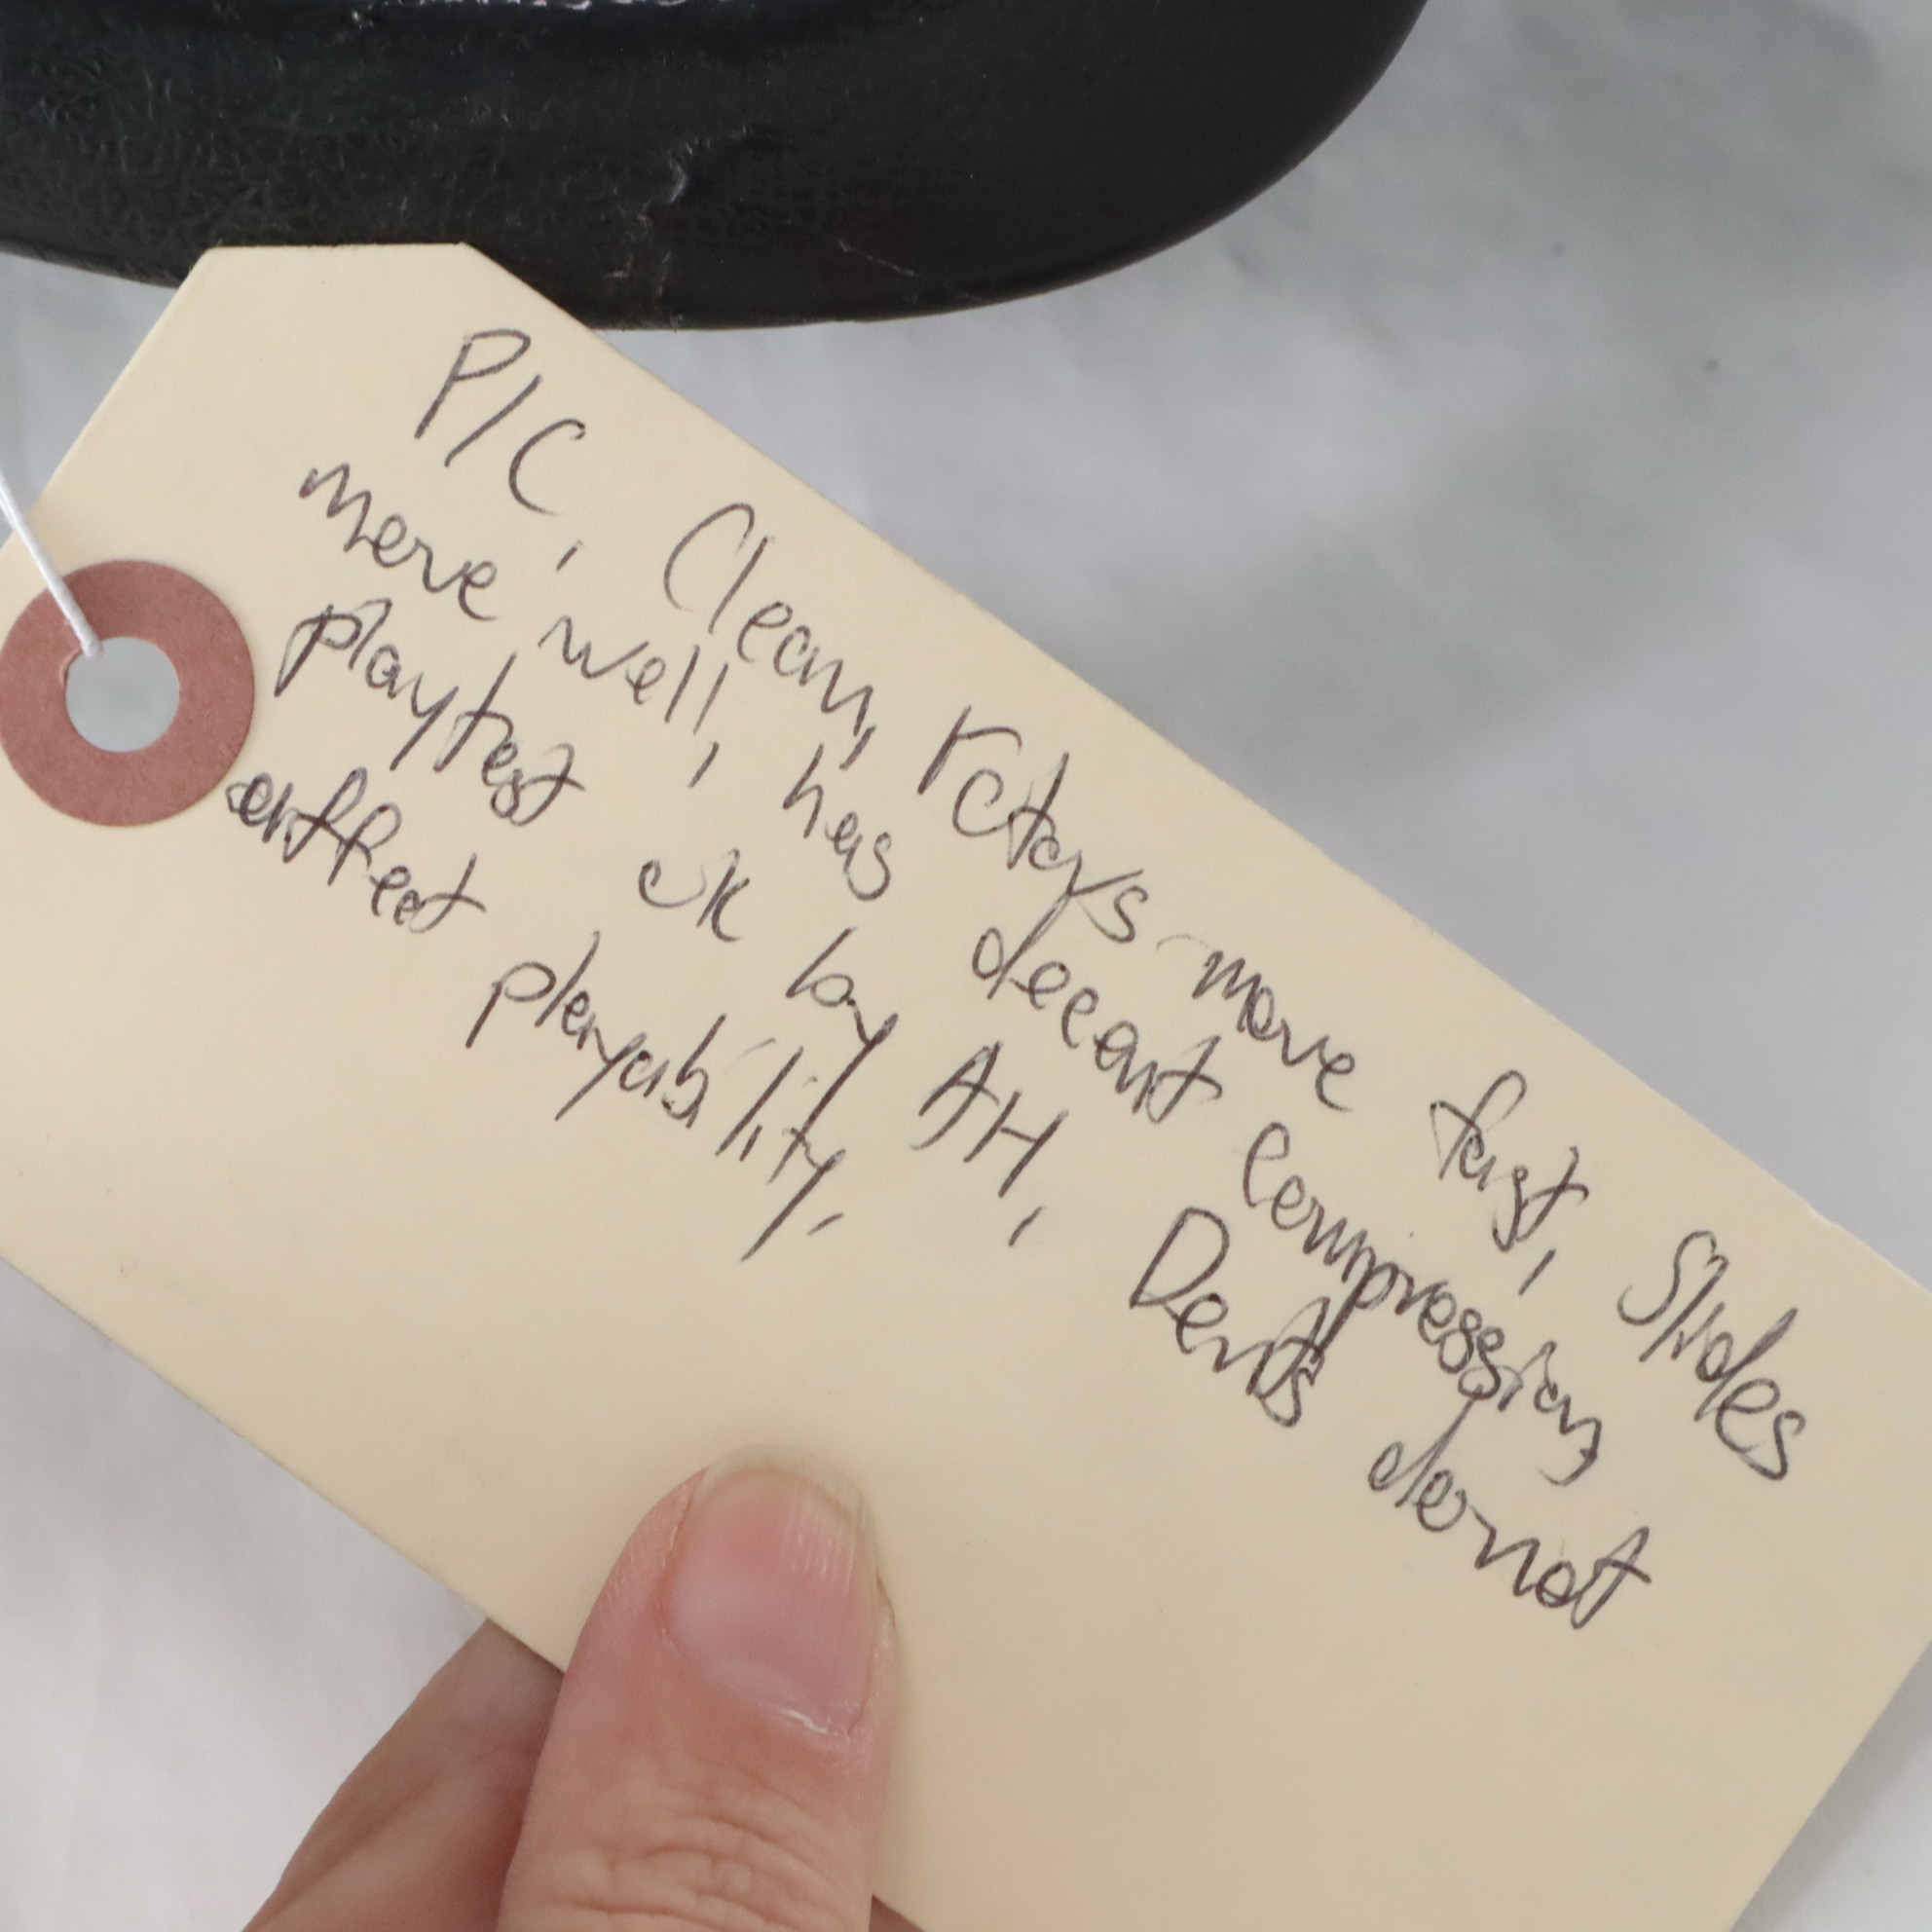 P/C, Clean, rotors move fast, slides
move well, has decent compression,
playtest ok by AH, Dents do not
affect playability.